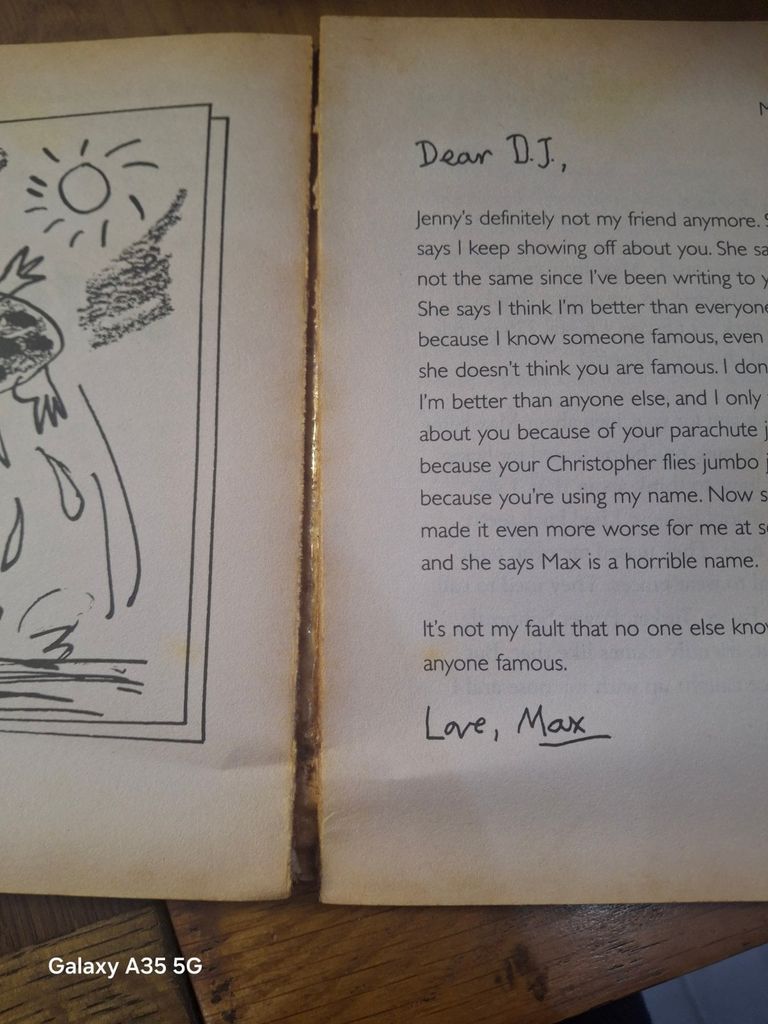 M
Dear D.J.,
Jenny's definitely not my friend anymore. S
says I keep showing off about you. She sa
not the same since I've been writing to y
She says I think I'm better than everyone
because I know someone famous, even
she doesn't think you are famous. I don
I'm better than anyone else, and I only
about you because of your parachute j
because your Christopher flies jumbo j
because you're using my name. Now s
made it even more worse for me at s
and she says Max is a horrible name.
It's not my fault that no one else kno
anyone famous.
Love, Max
Galaxy A35 5G